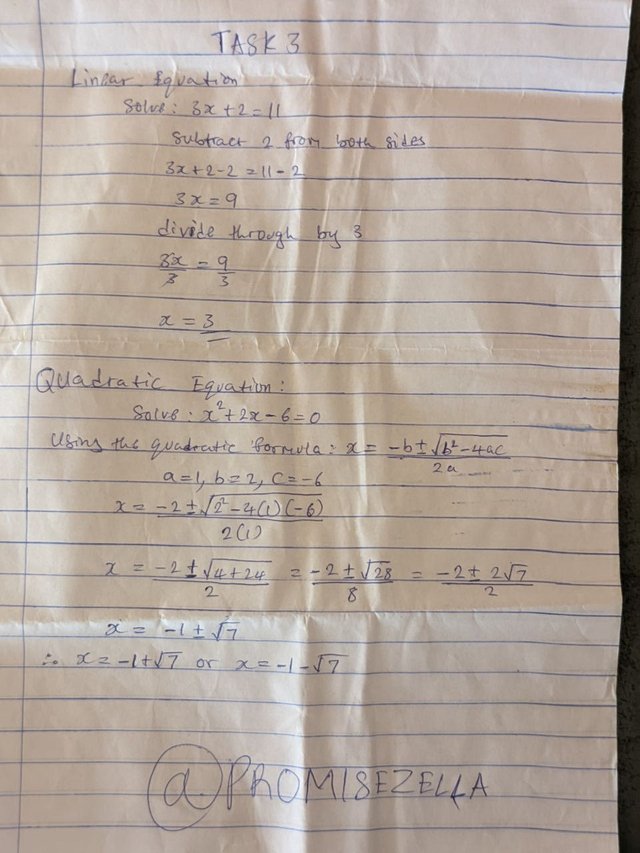 TASK 3
Linear Equation
Solve: 3x + 2 = 11
Subtract 2 from both sides
3x + 2 - 2 = 11 - 2
3x = 9
divide through by 3
3x/3 = 9/3
x = 3
Quadratic Equation:
Solve: x² + 2x - 6 = 0
Using the quadratic formula: x = -b ± √b² - 4ac / 2a
a = 1, b = 2, c = -6
x = -2 ± √2² - 4(1)(-6) / 2(1)
x = -2 ± √4 + 24 / 2 = -2 ± √28 / 8 = -2 ± 2√7 / 2
x = -1 ± √7
∴ x = -1 + √7 or x = -1 - √7
@PROMISEZELLA